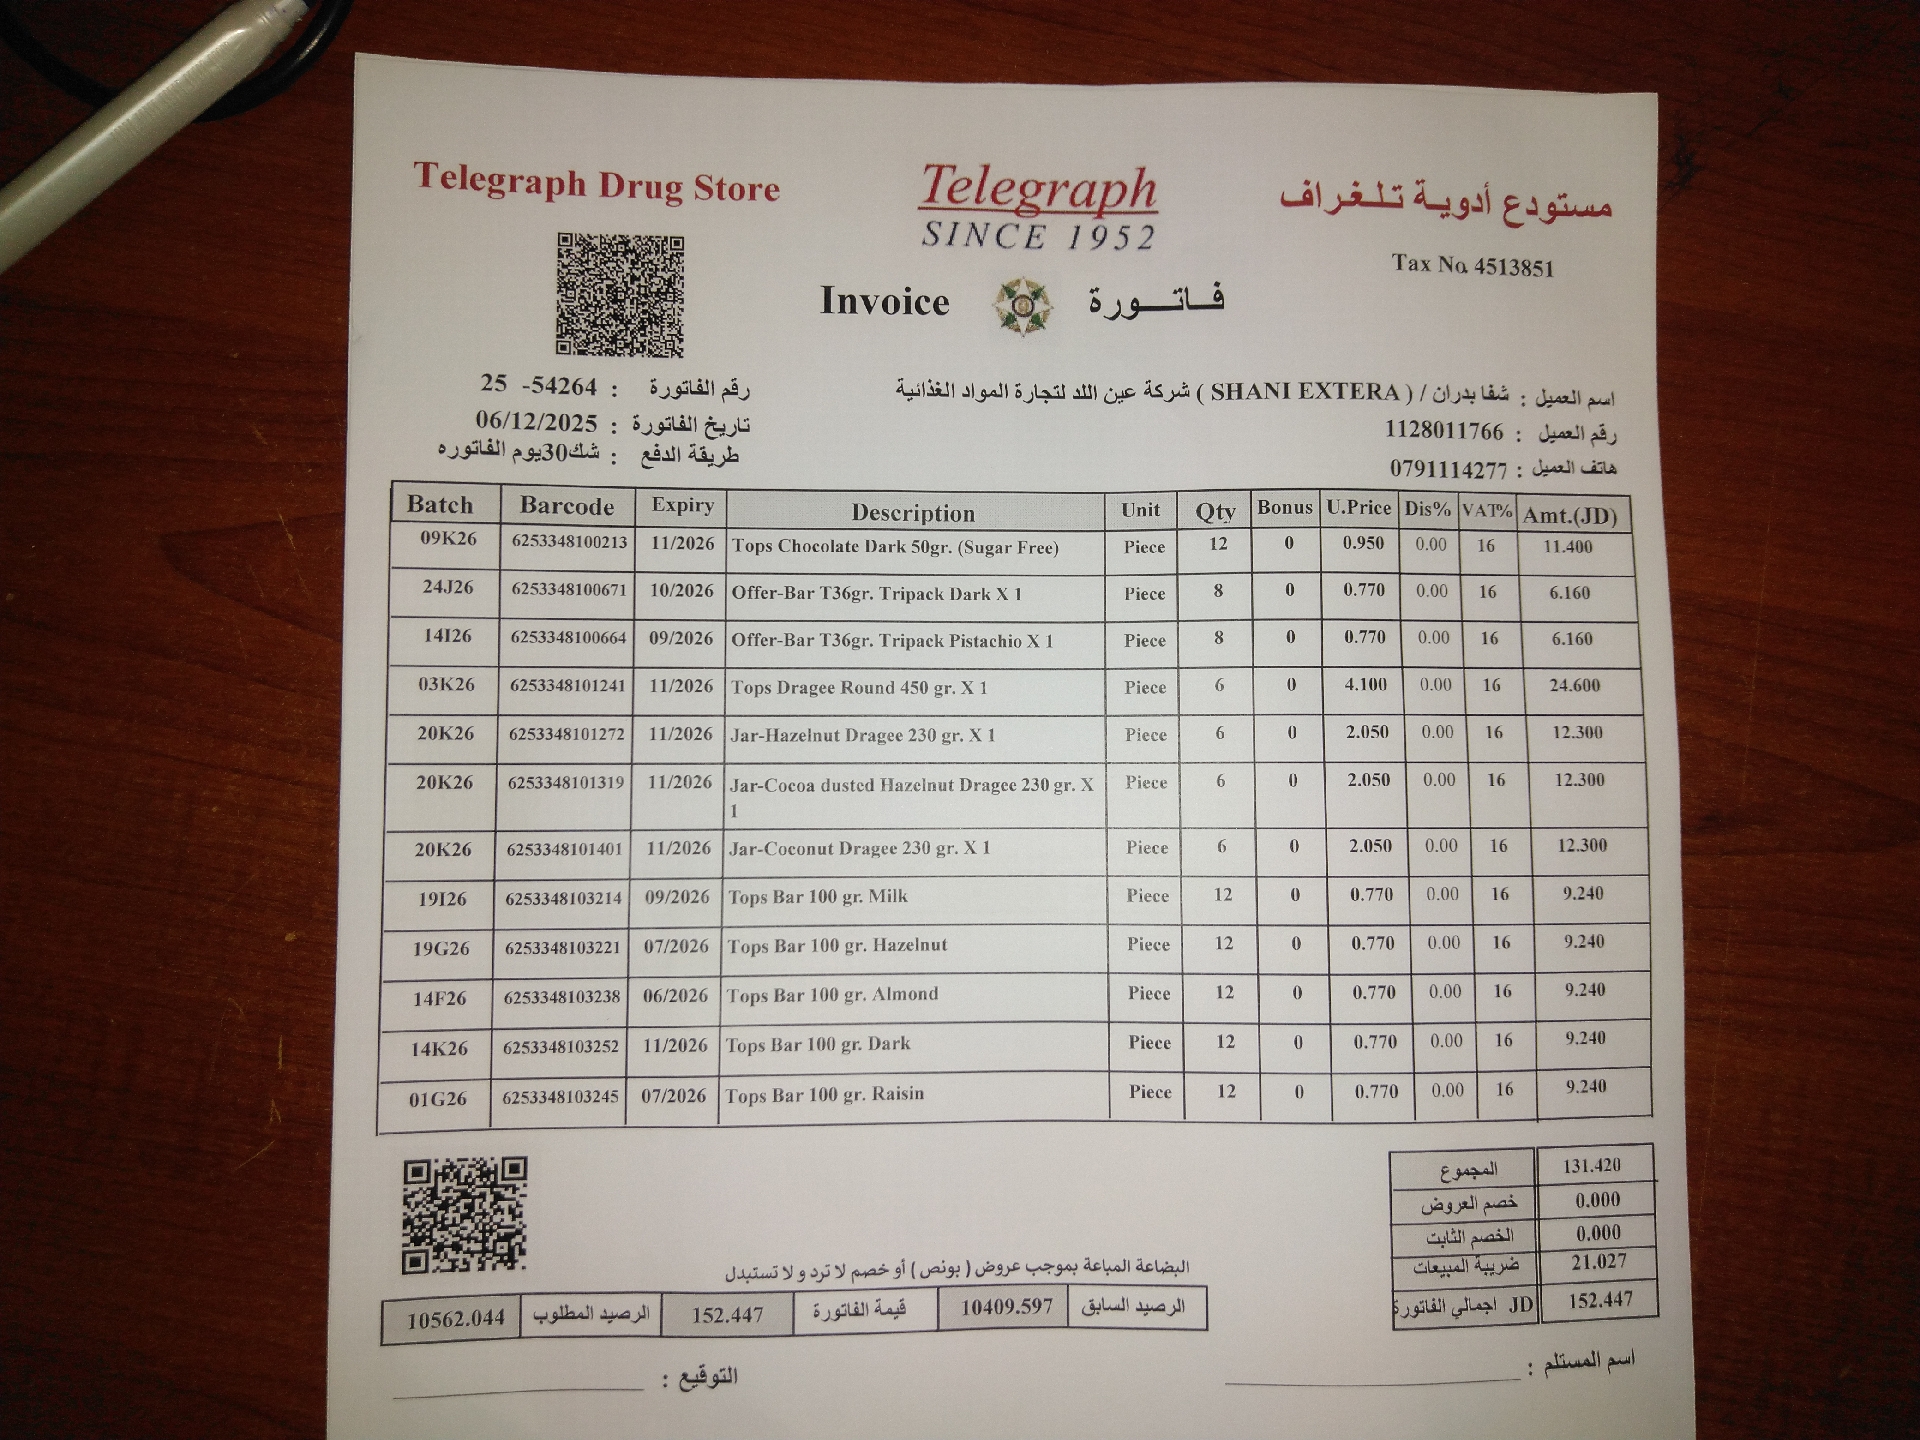 Telegraph Drug Store
Telegraph
SINCE 1952
مستودع أدوية تلغراف
Tax No. 4513851
Invoice فاتورة
رقم الفاتورة : 54264- 25
تاريخ الفاتورة : 06/12/2025
طريقة الدفع : شك30يوم الفاتوره
اسم العميل : شفا بدران / ( SHANI EXTERA ) شركة عين اللد لتجارة المواد الغذائية
رقم العميل : 1128011766
هاتف العميل : 0791114277
Batch Barcode Expiry Description Unit Qty Bonus U.Price Dis% VAT% Amt.(JD)
09K26 6253348100213 11/2026 Tops Chocolate Dark 50gr. (Sugar Free) Piece 12 0 0.950 0.00 16 11.400
24J26 6253348100671 10/2026 Offer-Bar T36gr. Tripack Dark X 1 Piece 8 0 0.770 0.00 16 6.160
14I26 6253348100664 09/2026 Offer-Bar T36gr. Tripack Pistachio X 1 Piece 8 0 0.770 0.00 16 6.160
03K26 6253348101241 11/2026 Tops Dragee Round 450 gr. X 1 Piece 6 0 4.100 0.00 16 24.600
20K26 6253348101272 11/2026 Jar-Hazelnut Dragee 230 gr. X 1 Piece 6 0 2.050 0.00 16 12.300
20K26 6253348101319 11/2026 Jar-Cocoa dusted Hazelnut Dragee 230 gr. X Piece 6 0 2.050 0.00 16 12.300
1
20K26 6253348101401 11/2026 Jar-Coconut Dragee 230 gr. X 1 Piece 6 0 2.050 0.00 16 12.300
19I26 6253348103214 09/2026 Tops Bar 100 gr. Milk Piece 12 0 0.770 0.00 16 9.240
19G26 6253348103221 07/2026 Tops Bar 100 gr. Hazelnut Piece 12 0 0.770 0.00 16 9.240
14F26 6253348103238 06/2026 Tops Bar 100 gr. Almond Piece 12 0 0.770 0.00 16 9.240
14K26 6253348103252 11/2026 Tops Bar 100 gr. Dark Piece 12 0 0.770 0.00 16 9.240
01G26 6253348103245 07/2026 Tops Bar 100 gr. Raisin Piece 12 0 0.770 0.00 16 9.240
المجموع 131.420
خصم العروض 0.000
الخصم الثابت 0.000
ضريبة المبيعات 21.027
اجمالي الفاتورة JD 152.447
البضاعة المباعة بموجب عروض ( بونص ) أو خصم لا ترد و لا تستبدل
الرصيد السابق 10409.597 قيمة الفاتورة 152.447 الرصيد المطلوب 10562.044
اسم المستلم :
التوقيع :